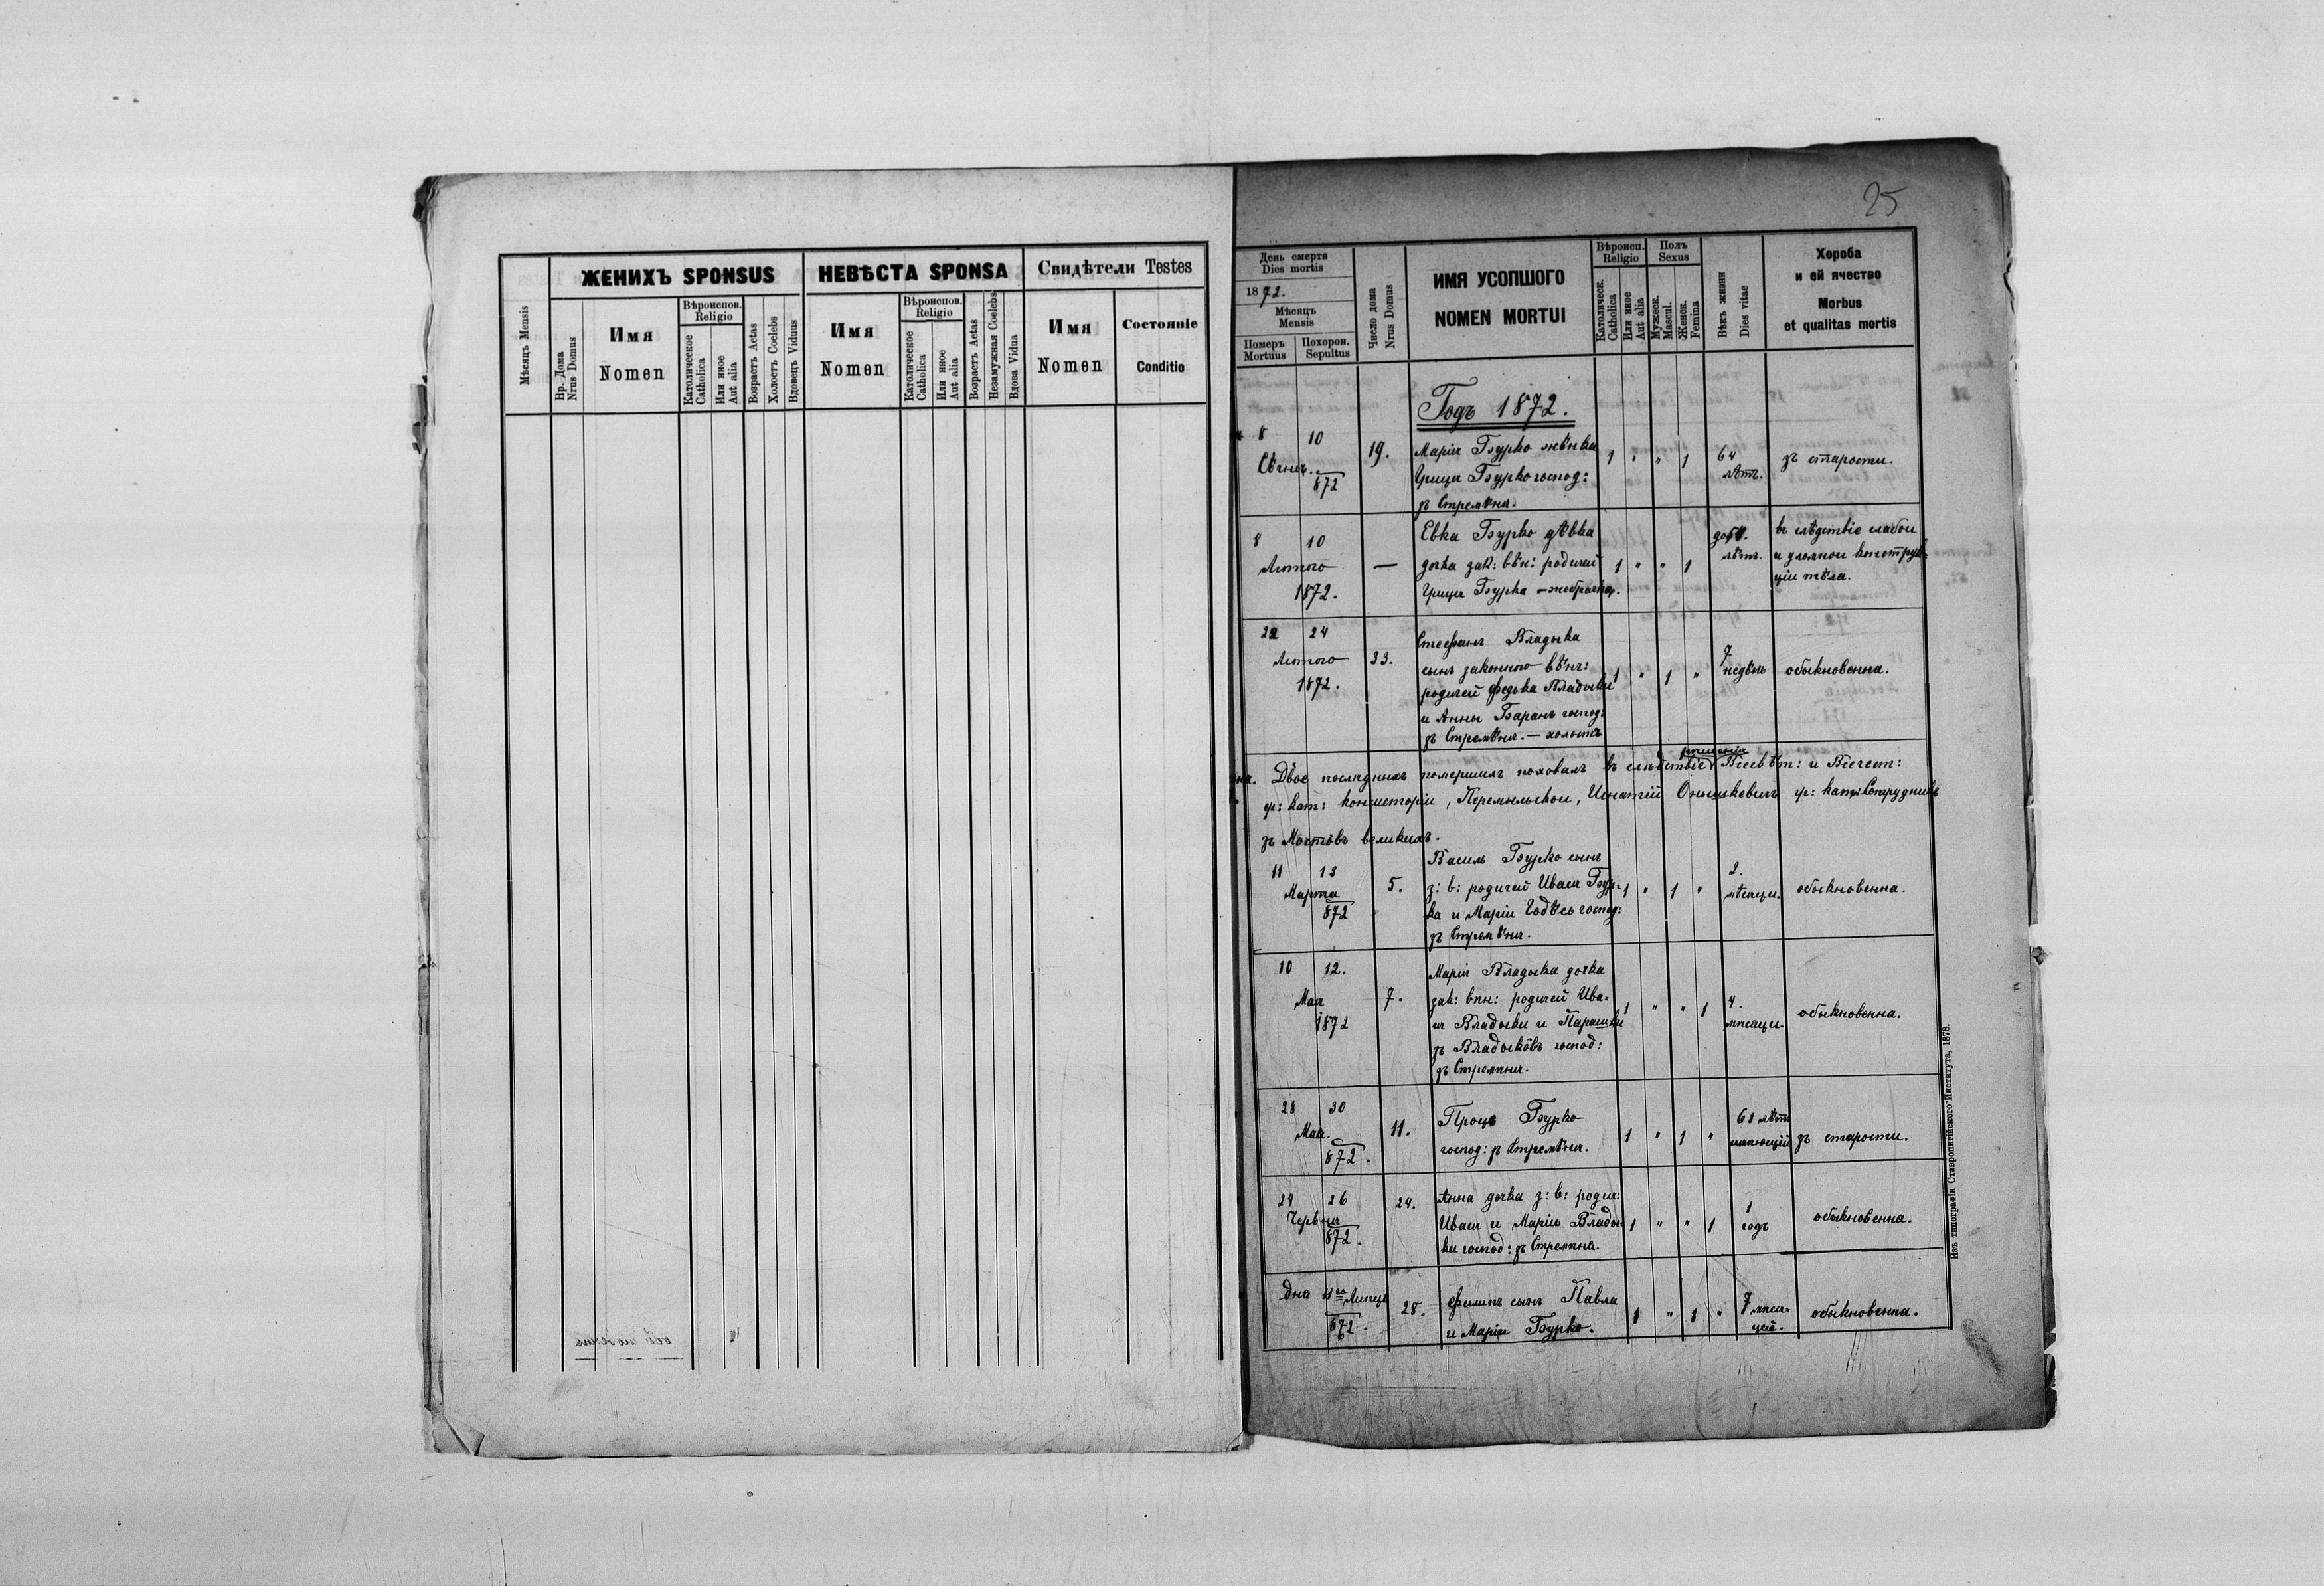 ЖЕНИХЪ SPONSUS
НЕВѢСТА SPONSA
Свидѣтели Testes
Мѣсяцъ Mensis
Нр. Дома
Nrus Domus
Имя
Nomen
Вѣроиспов.
Religio
Католическое
Catholica
Или иное
Aut alia
Возрастъ Aetas
Холостъ Coelebs
Вдовецъ Viduus
Имя
Nomen
Вѣроиспов.
Religio
Католическое
Catholica
Или иное
Aut alia
Возрастъ Aetas
Незамужная Coelebs
Вдова Vidua
Имя
Nomen
Состояніе
Conditio
25
День смерти
Dies mortis
1872.
Мѣсяцъ
Mensis
Померъ
Mortuus
Похорон.
Sepultus
Число дома
Nrus Domus
ИМЯ УСОПШОГО
NOMEN MORTUI
Вѣроисп.
Religio
Католическ.
Catholica
Или иное
Aut alia
Полъ
Sexus
Мужеск.
Mascul.
Женск.
Femina
Вѣкъ жизни
Dies vitae
Хороба
и ей ячество
Morbus
et qualitas mortis
Годъ 1872.
8 10 19. Марія Бурко жѣнка 1 " " 1 64 зъ старости.
Сѣчня. 872 Грица Бурко господ: лѣтъ.
зъ Стремѣня.
8 10 Евка Бурко дѣвка лѣтъ. въ слѣдствіе слабои
Лютого — дочка зак: вѣн: родичей 1 " " 1 и уломнои конструк-
1872. Грица Бурка — жебрачка. ціи тѣла.
22 24 Стефанъ Владыка 7
Лютого 33. сынъ законного вѣнч: 1 " 1 " недѣль обыкновенна.
1872. родичей Федька Владыки
и Анны Баранъ господ:
зъ Стремѣня. — холостъ
Двое послѣдныхъ помершихъ поховалъ въ слѣдствіе рѣшенія Всесвѣт: и Всечест:
гр: кат: консисторіи, Перемыльскои, Игнатій Онышкевичъ гр: кат: Сотрудникъ
зъ Мостôвъ великихъ.
11 13 Василь Бурко сынъ 2.
Марта 5. з: в: родичей Ивана Бур- 1 " 1 " мѣсяци. обыкновенна.
872 ка и Маріи господ:
зъ Стремѣня.
10 12. Марія Владыка дочка
Мая 7. зак: вѣн: родичей Ива- 1 " " 1 4. обыкновенна.
1872 на Владыки и Парашки мѣсяци.
зъ Владыкôвъ господ:
зъ Стремѣня.
28 30 11. Проць Бурко 1 " 1 " лѣтъ
Мая. господ: зъ Стремѣня. имѣющій зъ старости.
872.
24 26 24. Анна дочка з: в: родич: 1
Червня Ивана и Маріи Влады- 1 " " 1 годъ обыкновенна.
872. ки господ: зъ Стремѣня.
Дня 11го Липця 28. Филипъ сынъ Павла 1 " 1 " 7 мѣся- обыкновенна.
872. и Маріи Бурко. цей.
Изъ типографіи Ставропигійского Института, 1878.